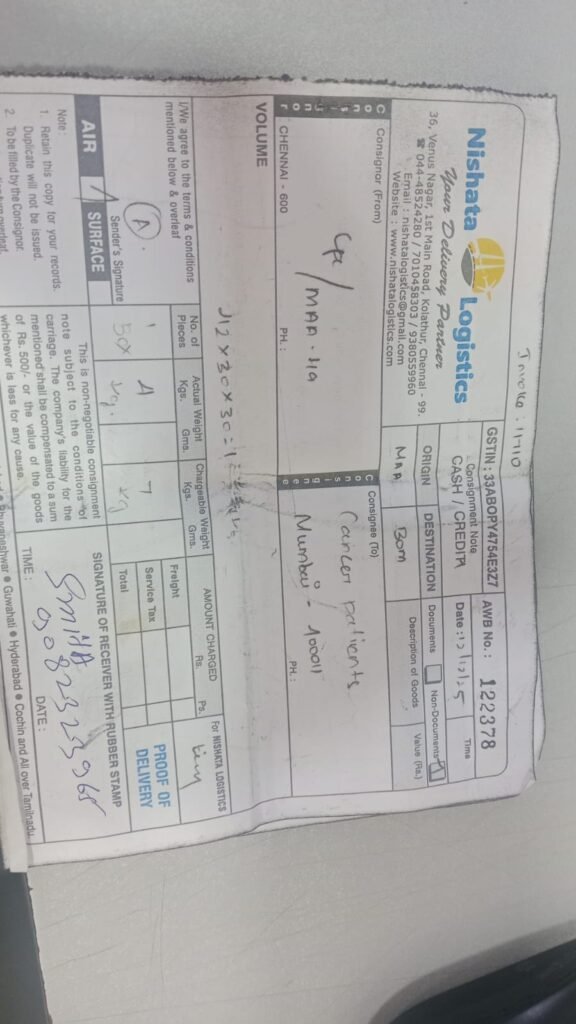 Invoice: 11710
Nishata Logistics
Your Delivery Partner
36, Venus Nagar, 1st Main Road, Kolathur, Chennai - 99.
☎ 044-48524280 / 7010458303 / 9380559960
Email : nishatalogistics@gmail.com
Website : www.nishatalogistics.com
GSTIN : 33ABOPY4754E3Z7
AWB No. : 122378
Consignment Note
CASH / CREDIT
Date : 12/12/25
Time
ORIGIN
DESTINATION
Documents
Non-Documents
MAA
Bom
Description of Goods
Value (Rs.)
Consignor
Consignor (From)
/ MAA - 119
CHENNAI - 600
PH. :
Consignee
Consignee (To)
Cancer patients
Mumbai - 400011
PH. :
VOLUME
I/We agree to the terms & conditions
mentioned below & overleaf
Sender's Signature
No. of
Pieces
Actual Weight
Kgs. Gms.
Chargeable Weight
Kgs. Gms.
AMOUNT CHARGED
Rs. Ps.
Freight
Service Tax
Total
For NISHATA LOGISTICS
PROOF OF
DELIVERY
AIR
SURFACE
1
Box
4
kg.
7
kg
Note :
1. Retain this copy for your records.
Duplicate will not be issued.
2. To be filled by the Consignor.
This is non-negotiable consignment
note subject to the conditions of
carriage. The company's liability for the
mentioned shall be compensated to a sum
of Rs. 500/- or the value of the goods
whichever is less for any cause.
SIGNATURE OF RECEIVER WITH RUBBER STAMP
TIME :
DATE :
Guwahati ● Hyderabad ● Cochin and All over Tamilnadu.